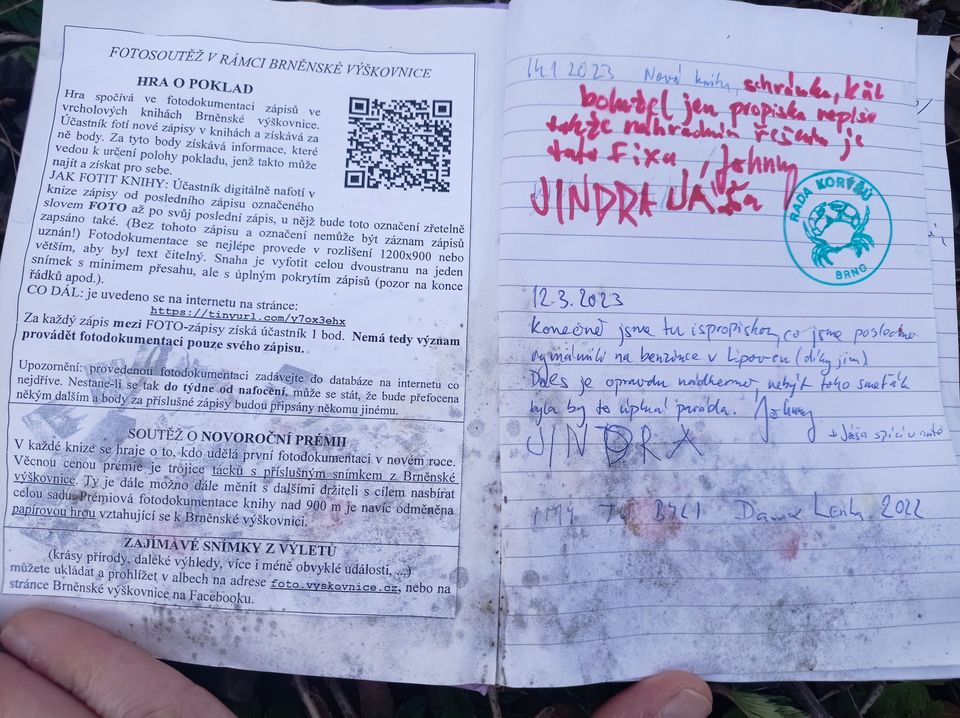 FOTOSOUTĚŽ V RÁMCI BRNĚNSKÉ VÝŠKOVNICE
HRA O POKLAD
Hra spočívá ve fotodokumentaci zápisů ve
vrcholových knihách Brněnské výškovnice.
Účastník fotí nové zápisy v knihách a získává za
ně body. Za tyto body získává informace, které
vedou k určení polohy pokladu, jenž takto může
najít a získat pro sebe.
JAK FOTIT KNIHY: Účastník digitálně nafotí v
knize zápisy od posledního zápisu označeného
slovem FOTO až po svůj poslední zápis, u nějž bude toto označení zřetelně
zapsáno také. (Bez tohoto zápisu a označení nemůže být záznam zápisů
uznán!) Fotodokumentace se nejlépe provede v rozlišení 1200x900 nebo
větším, aby byl text čitelný. Snaha je vyfotit celou dvoustranu na jeden
snímek s minimem přesahu, ale s úplným pokrytím zápisů (pozor na konce
řádků apod.).
CO DÁL: je uvedeno se na internetu na stránce:
https://tinyurl.com/y7ox3ehx
Za každý zápis mezi FOTO-zápisy získá účastník 1 bod. Nemá tedy význam
provádět fotodokumentaci pouze svého zápisu.
Upozornění: provedenou fotodokumentaci zadávejte do databáze na internetu co
nejdříve. Nestane-li se tak do týdne od nafocení, může se stát, že bude přefocena
někým dalším a body za příslušné zápisy budou připsány někomu jinému.
SOUTĚŽ O NOVOROČNÍ PRÉMII
V každé knize se hraje o to, kdo udělá první fotodokumentaci v novém roce.
Věcnou cenou prémie je trojice tácků s příslušným snímkem z Brněnské
výškovnice. Ty je dále možno dále měnit s dalšími držiteli s cílem nasbírat
celou sadu. Prémiová fotodokumentace knihy nad 900 m je navíc odměněna
papírovou hrou vztahující se k Brněnské výškovnici.
ZAJÍMAVÉ SNÍMKY Z VÝLETŮ
(krásy přírody, daleké výhledy, více i méně obvyklé události, ...)
můžete ukládat a prohlížet v albech na adrese foto.vyskovnice.cz, nebo na
stránce Brněnské výškovnice na Facebooku.
14.1 2023 Nová kniha, schránka, kál
bohužel jen propiska nepíše
takže náhradním řešením je
tato fixa, Johnny
JINDRA JÁŠA
RADA KORÝŠŮ
BRNO
12.3.2023
Konečně jsme tu i s propiskou, co jsme posledně
vyžádali na benzínce v Lipovci (díky jim)
Dnes je opravdu nádherně, nebýt toho smeťák
byla by to úplná paráda. Johnny
JINDRA + Jáša spící v autě
MY TU BYLI Dana Lenka 2022